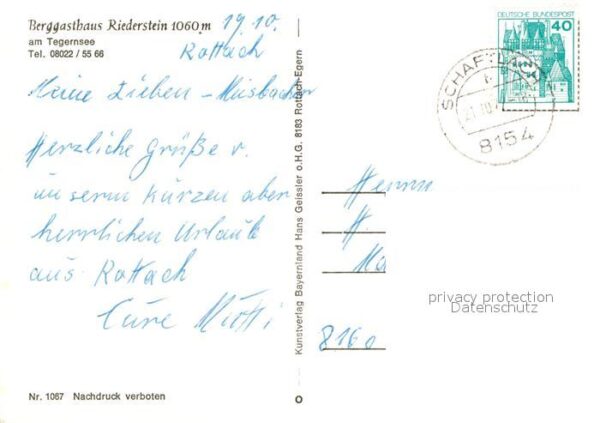 Berggasthaus Riederstein 1060 m
am Tegernsee
Tel. 08022 / 55 66
19.10.
Rottach
Meine Lieben - Miesbacher
Herzliche Grüße v.
unserm kurzen aber
herrlichen Urlaub
aus Rottach
Eure Mutti
Nr. 1067 Nachdruck verboten
Kunstverlag Bayernland Hans Geissler o.H.G. 8183 Rottach-Egern
DEUTSCHE BUNDESPOST
40
8154
Herrn
H.
8160
privacy protection
Datenschutz